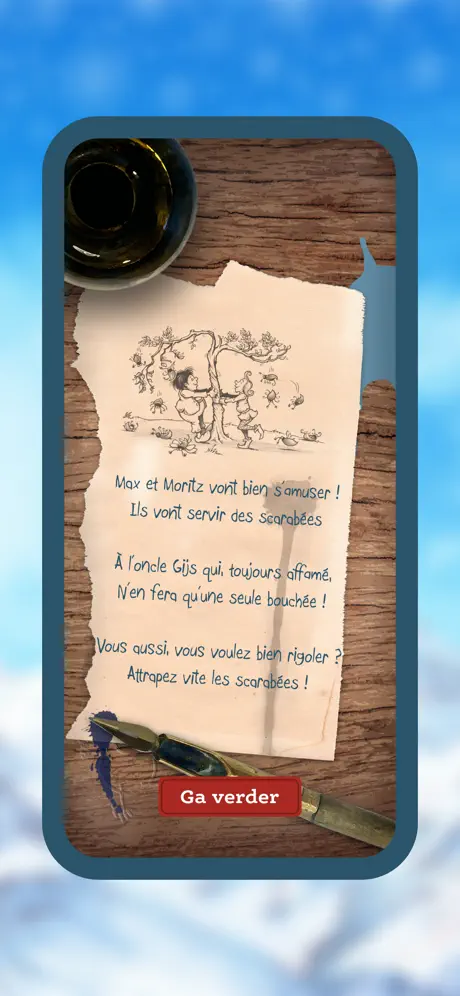 Max et Moritz vont bien s'amuser !
Ils vont servir des scarabées
À l'oncle Gijs qui, toujours affamé,
N'en fera qu'une seule bouchée !
Vous aussi, vous voulez bien rigoler ?
Attrapez vite les scarabées !
Ga verder